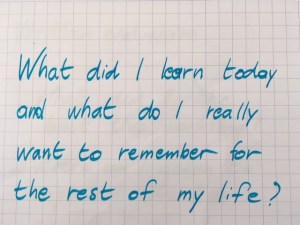 What did I learn today
and what do I really
want to remember for
the rest of my life?